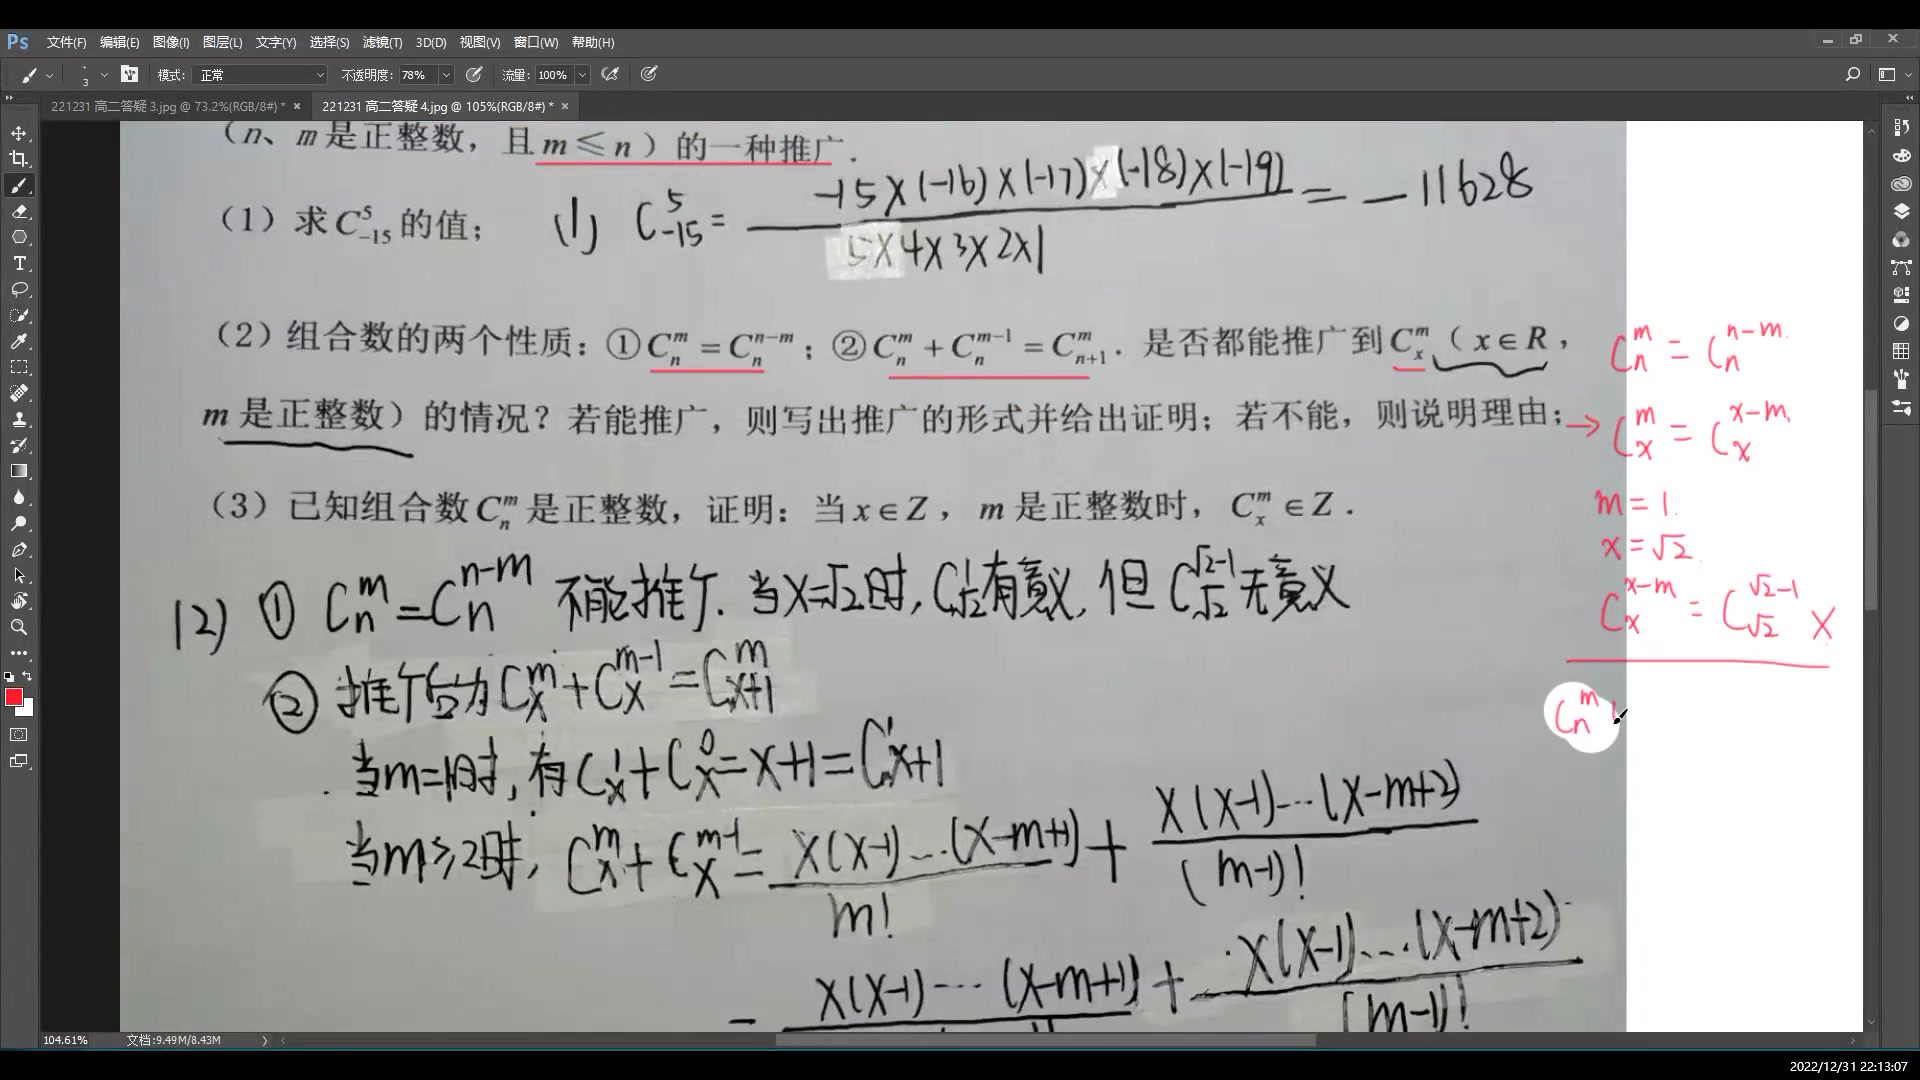 Ps 文件(F) 编辑(E) 图像(I) 图层(L) 文字(Y) 选择(S) 滤镜(T) 3D(D) 视图(V) 窗口(W) 帮助(H)
3 模式: 正常 不透明度: 78% 流量: 100%
221231 高二答疑 3.jpg @ 73.2%(RGB/8#) * × 221231 高二答疑 4.jpg @ 105%(RGB/8#) * ×
(n、m 是正整数，且 m≤n）的一种推广.
(1) 求 C_{-15}^5 的值;
(1) C_{-15}^5 = \frac{-15×(-16)×(-17)×(-18)×(-19)}{5×4×3×2×1} = -11628
(2) 组合数的两个性质: ① C_n^m = C_n^{n-m} ; ② C_n^m + C_n^{m-1} = C_{n+1}^m . 是否都能推广到 C_x^m （x∈R，
m 是正整数）的情况？若能推广，则写出推广的形式并给出证明；若不能，则说明理由；
(3) 已知组合数 C_n^m 是正整数，证明: 当 x∈Z，m 是正整数时，C_x^m ∈Z .
(2) ① C_n^m = C_n^{n-m} 不能推广. 当 x=√2 时, C_{√2}^1 有意义, 但 C_{√2}^{√2-1} 无意义
② 推广为 C_x^m + C_x^{m-1} = C_{x+1}^m
当 m=1时, 有 C_x^1 + C_x^0 = x+1 = C_{x+1}^1
当 m≥2时, C_x^m + C_x^{m-1} = \frac{x(x-1)...(x-m+1)}{m!} + \frac{x(x-1)...(x-m+2)}{(m-1)!}
= x(x-1)...(x-m+1) + \frac{x(x-1)...(x-m+2)}{(m-1)!}
C_n^m = C_n^{n-m}.
→ C_x^m = C_x^{x-m}
m = 1.
x = √2.
C_x^{x-m} = C_{√2}^{√2-1} ×
C_n^m
104.61% 文档:9.49M/8.43M
2022/12/31 22:13:07